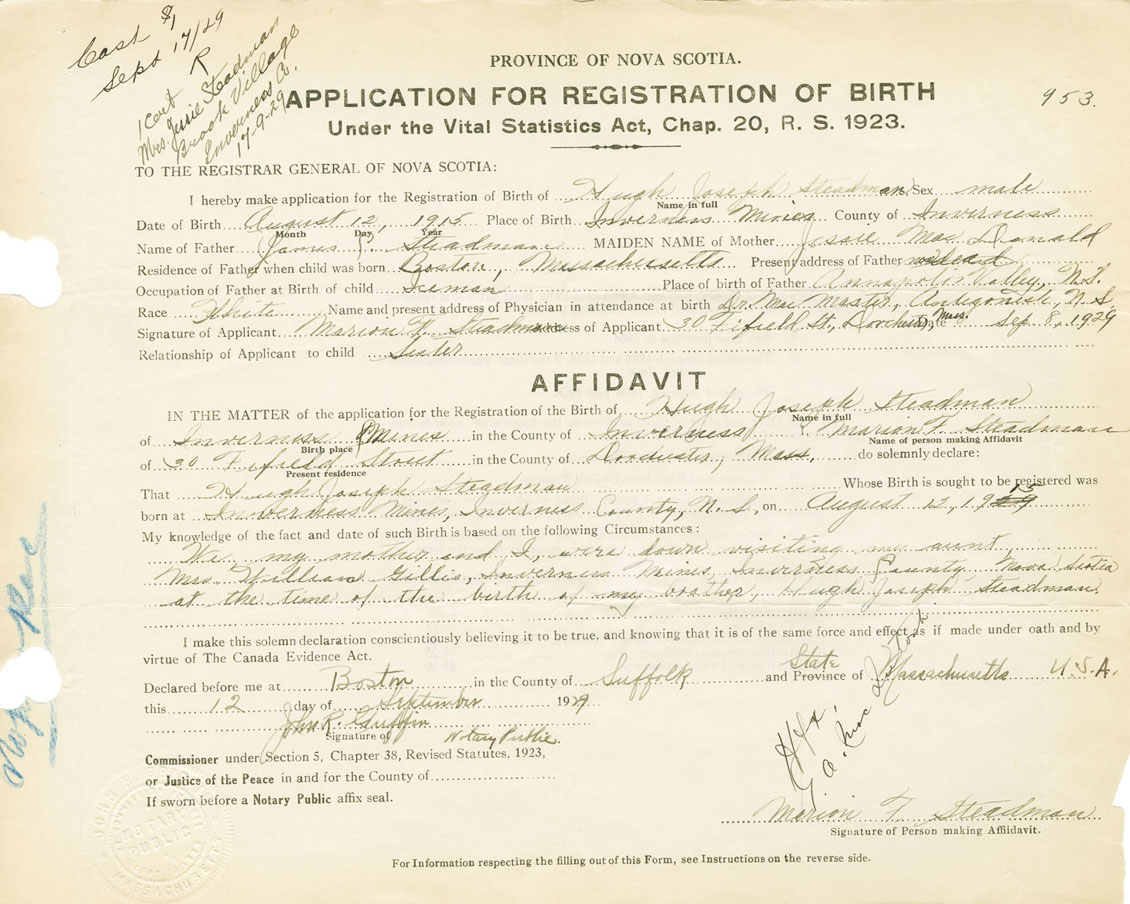 Cost $1
Sept 17/29
R
1 Cert
Mrs. Jessie Steadman
Brook Village
Inverness Co.
17-9-29
PROVINCE OF NOVA SCOTIA.
APPLICATION FOR REGISTRATION OF BIRTH
953.
Under the Vital Statistics Act, Chap. 20, R. S. 1923.
TO THE REGISTRAR GENERAL OF NOVA SCOTIA:
I hereby make application for the Registration of Birth of Hugh Joseph Steadman Sex male
Name in full
Date of Birth August 12, 1915 Place of Birth Inverness Mines County of Inverness
Month Day Year
Name of Father James J. Steadman MAIDEN NAME of Mother Jessie Mac Donald
Residence of Father when child was born Boston, Massachusetts Present address of Father dead
Occupation of Father at Birth of child Iceman Place of birth of Father Annapolis Valley, N.S.
Race White Name and present address of Physician in attendance at birth Dr. Mac Master, Antigonish, N.S.
Signature of Applicant Marion F. Steadman Address of Applicant 30 Fifield St., Dorchester, Mass. Date Sep. 8, 1929
Relationship of Applicant to child Sister
AFFIDAVIT
IN THE MATTER of the application for the Registration of the Birth of Hugh Joseph Steadman
Name in full
of Inverness Mines in the County of Inverness I, Marion F. Steadman
Birth place Name of person making Affidavit
of 30 Fifield Street in the County of Dorchester, Mass, do solemnly declare:
Present residence
That Hugh Joseph Steadman Whose Birth is sought to be registered was
born at Inverness Mines, Inverness County, N. S, on August 12, 1915
My knowledge of the fact and date of such Birth is based on the following Circumstances:
We, my mother and I, were down visiting my aunt
Mrs. William Gillis, Inverness Mines, Inverness County, Nova Scotia
at the time of the birth of my brother, Hugh Joseph Steadman.
I make this solemn declaration conscientiously believing it to be true, and knowing that it is of the same force and effect as if made under oath and by
virtue of The Canada Evidence Act.
Declared before me at Boston in the County of Suffolk and State Province of Massachusetts U.S.A.
this 12 day of September 1929
John R. Griffin
Signature of Notary Public.
Commissioner under Section 5, Chapter 38, Revised Statutes, 1923,
or Justice of the Peace in and for the County of
If sworn before a Notary Public affix seal.
Hfx.
Marion F. Steadman
Signature of Person making Affiidavit.
For Information respecting the filling out of this Form, see Instructions on the reverse side.
NOTARY
PUBLIC
MASSACHUSETTS